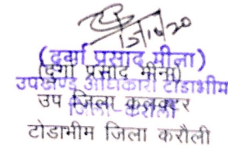 (दुर्गा प्रसाद मीना)
(दुर्गा प्रसाद मीना)
उपखण्ड अधिकारी टोडाभीम
उप जिला कलक्टर
जिला करौली
टोडाभीम जिला करौली